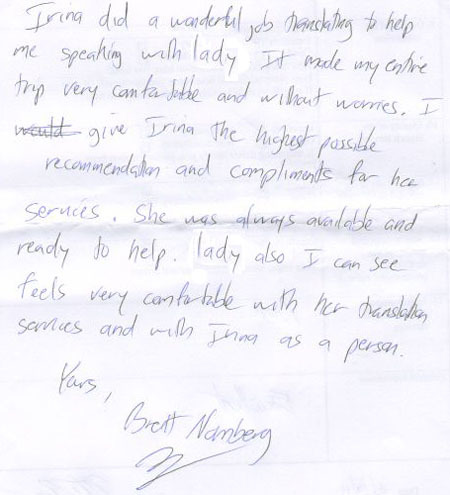 Irina did a wonderful job translating to help
me speaking with lady It made my entire
trip very comfortable and without worries. I
would give Irina the highest possible
recommendation and compliments for her
services. She was always available and
ready to help. lady also I can see
feels very comfortable with her translation
services and with Irina as a person.
Yours,
Brett Namberg